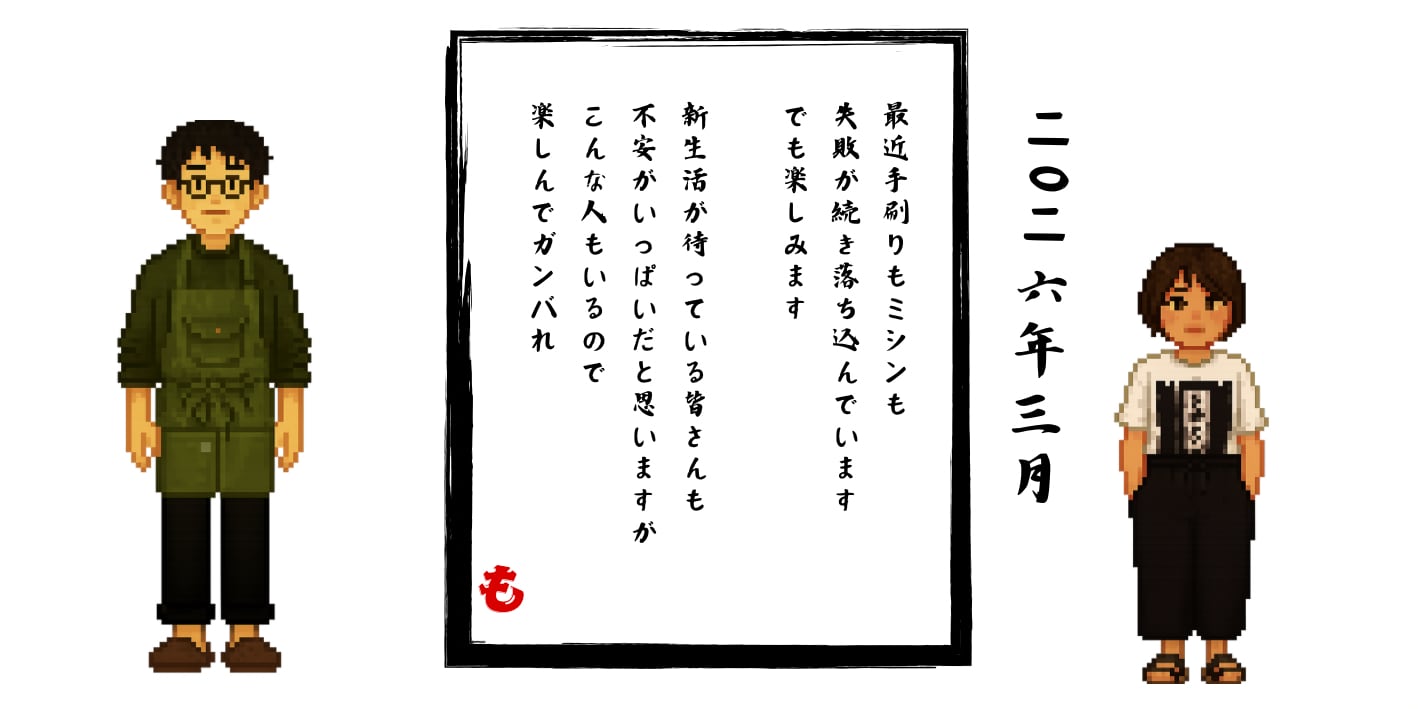 二〇二六年三月
最近手刷りもミシンも
失敗が続き落ち込んでいます
でも楽しみます
新生活が待っている皆さんも
不安がいっぱいだと思いますが
こんな人もいるので
楽しんでガンバれ
も